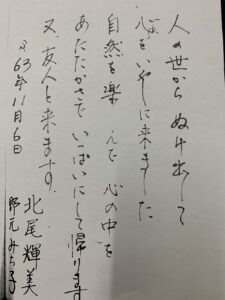 人の世からぬけ出して
心をいやしに来ました
自然を楽しんだ 心の中を
あたたかさで いっぱいにして帰ります
又、友人と来ます。
S63年11月6日
北尾輝美
野元みち子